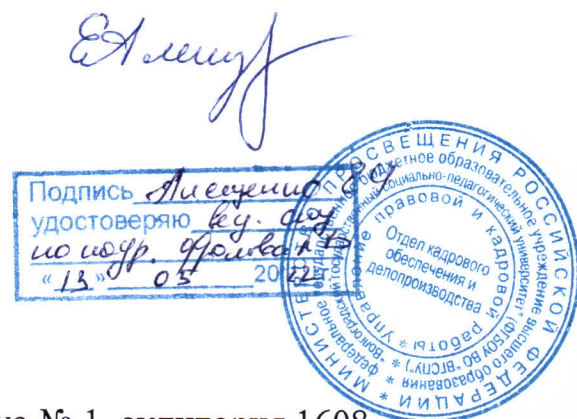 Подпись
удостоверяю вед. док
по
« 13 » 05 2022
МИНИСТЕРСТВО ПРОСВЕЩЕНИЯ РОССИЙСКОЙ ФЕДЕРАЦИИ *
федеральное государственное бюджетное образовательное учреждение высшего образования
"Волгоградский государственный социально-педагогический университет" (ФГБОУ ВО "ВГСПУ") *
Управление правовой и кадровой работы *
Отдел кадрового
обеспечения и
делопроизводства
№ 1, аудитория 1608